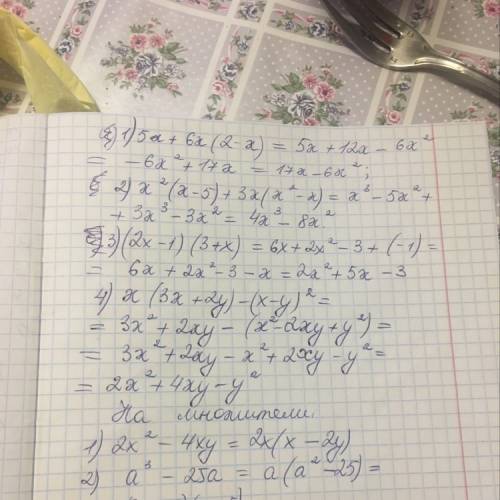 1) 5x + 6x(2-x) = 5x + 12x - 6x²
= -6x² + 17x = 17x - 6x²;
2) x²(x-5) + 3x(x²-x) = x³ - 5x² +
+ 3x³ - 3x² = 4x³ - 8x²
3) (2x-1)(3+x) = 6x + 2x² - 3 + (-1) =
= 6x + 2x² - 3 - x = 2x² + 5x - 3
4) x(3x+2y) - (x-y)² =
= 3x² + 2xy - (x² - 2xy + y²) =
= 3x² + 2xy - x² + 2xy - y² =
= 2x² + 4xy - y²
На множители
1) 2x² - 4xy = 2x(x - 2y)
2) a³ - 25a = a(a² - 25) =